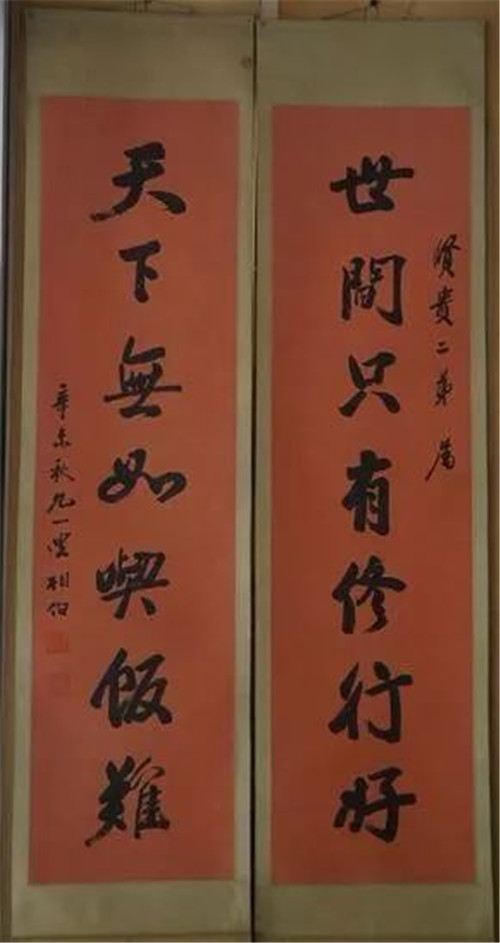 賢貴二弟屬
世間只有修行好
天下無如喫飯難
辛未秋九一叟相伯